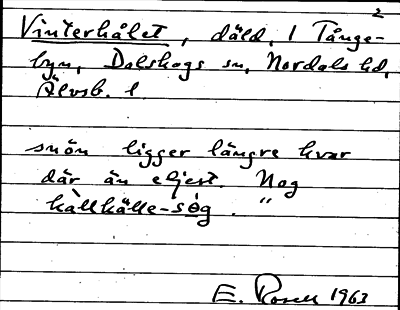 2
Vinterhålet, däld, 1 Tånge-
byn, Dalskogs sn, Nordals hd,
Älvsb. l.
snön ligger längre kvar
där än eljest. Nog
kållkälle-sög. "
E. Rosell 1963